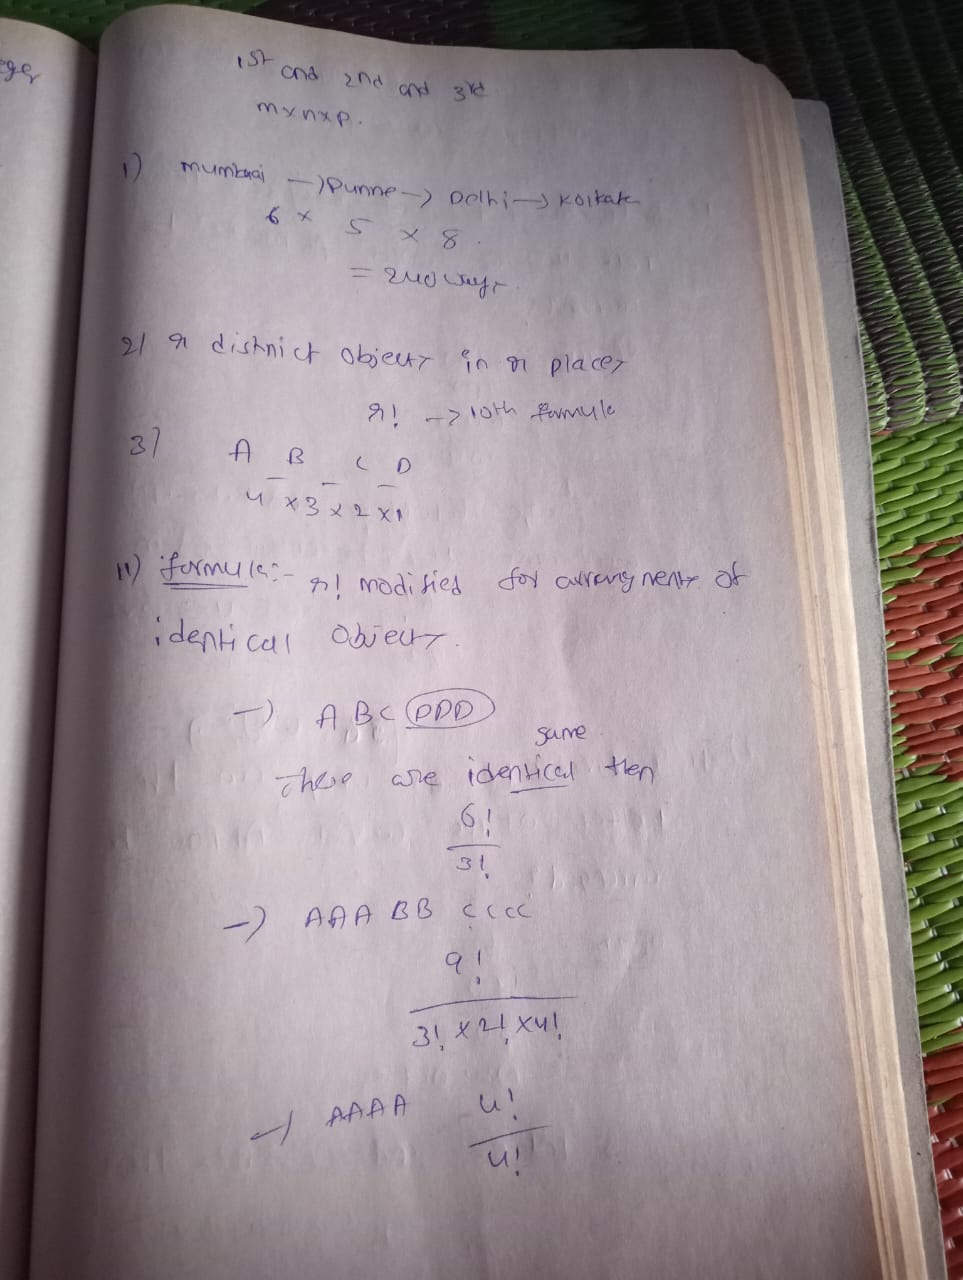 1st and 2nd and 3rd
m x n x p.
1) mumbai → Punne → Delhi → Kolkata
6 x 5 x 8.
= 240 ways
2) r distnict objects in r places
r! → 10th formule
3) A B C D
4 x 3 x 2 x 1
11) formule:- r! modified for arrangments of
identical objects.
→ A B C DDD
same
these are identical then
6!
3!
→ AAA BB CCCC
9!
3! x 2! x 4!
→ AAAA 4!
4!